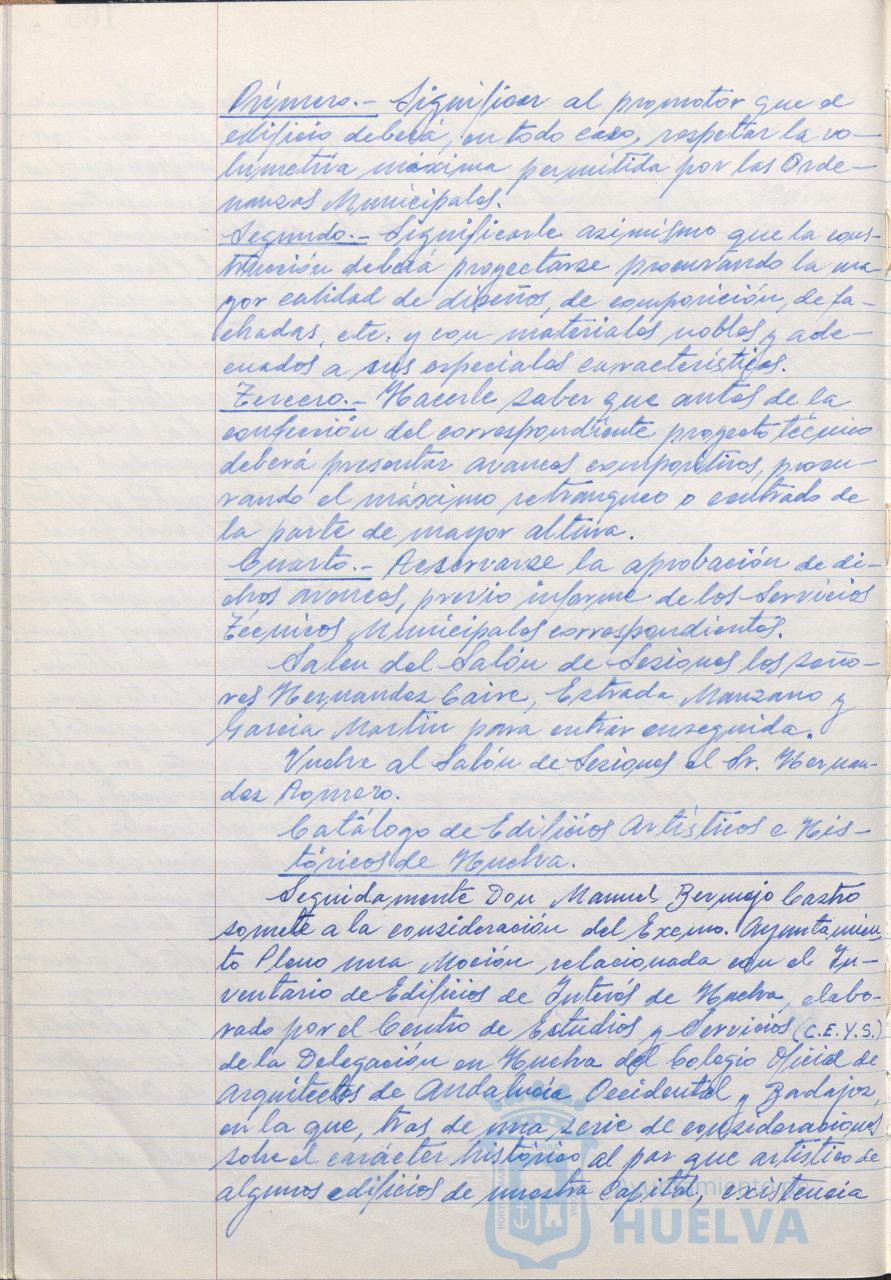 Primero.- Significar al promotor que el
edificio deberá, en todo caso, respetar la vo-
lumetría máxima permitida por las Orde-
nanzas Municipales.
Segundo.- Significarle asimismo que la cons-
trucción deberá proyectarse procurando la ma-
yor calidad de diseños, de composición, de fa-
chadas, etc. y con materiales nobles y ade-
cuados a sus especiales características.
Tercero.- Hacerle saber que antes de la
confección del correspondiente proyecto técnico
deberá presentar avances compositivos, procu-
rando el máximo retranqueo o centrado de
la parte de mayor altura.
Cuarto.- Reservarse la aprobación de di-
chos avances, previo informe de los Servicios
Técnicos Municipales correspondientes.
Salen del Salón de Sesiones los seño-
res Hernandez Caire, Estrada Manzano y
Garcia Martin para entrar enseguida.
Vuelve al Salón de Sesiones el Sr. Hernan-
dez Romero.
Catálogo de Edificios Artísticos e His-
tóricos de Huelva.
Seguidamente Don Manuel Bermejo Castro
somete a la consideración del Excmo. Ayuntamien-
to Pleno una Moción relacionada con el In-
ventario de Edificios de Interés de Huelva, elabo-
rado por el Centro de Estudios y Servicios (C.E.Y.S.)
de la Delegación en Huelva del Colegio Oficial de
Arquitectos de Andalucía Occidental y Badajoz,
en la que, tras de una serie de consideraciones
sobre el carácter histórico al par que artístico de
algunos edificios de nuestra Capital, existencia
Ayuntamiento de
HUELVA